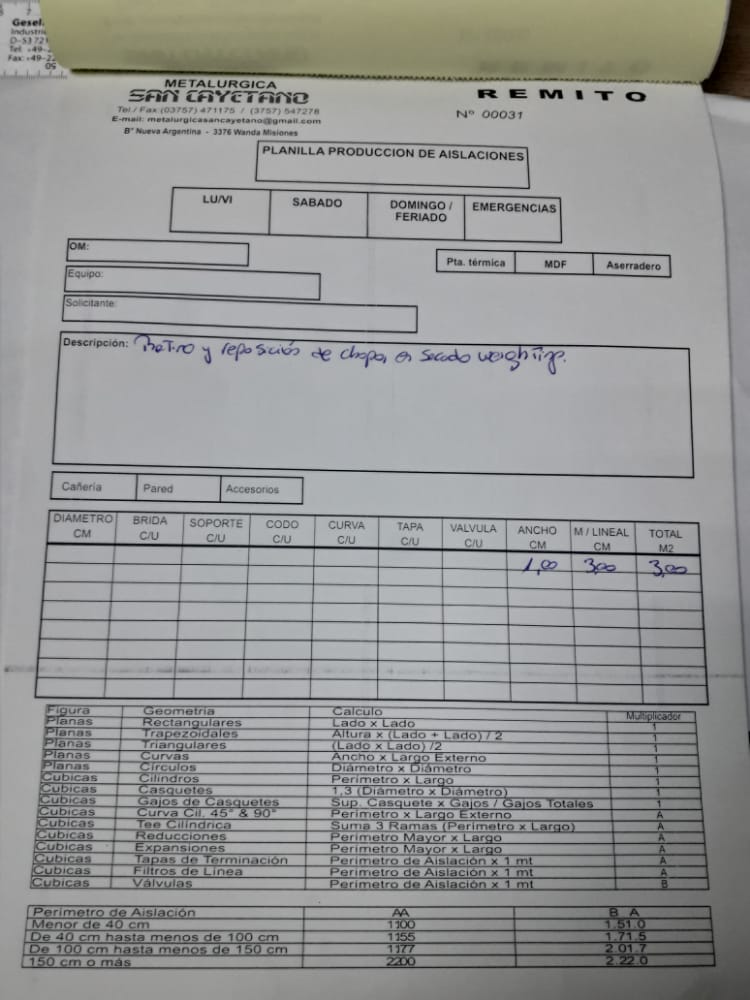 Gesel
Industri
D-5372
Tel: +49-2
Fax: +49-22
METALURGICA
SAN CAYETANO
Tel / Fax (03757) 471175 / (3757) 547278
E-mail: metalurgicasancayetano@gmail.com
B° Nueva Argentina - 3376 Wanda Misiones
REMITO
N° 00031
PLANILLA PRODUCCION DE AISLACIONES
LU/VI SABADO DOMINGO / FERIADO EMERGENCIAS
OM:
Pta. térmica MDF Aserradero
Equipo:
Solicitante:
Descripción: Retiro y reposición de chapa, en secado
Cañería Pared Accesorios
DIAMETRO CM BRIDA C/U SOPORTE C/U CODO C/U CURVA C/U TAPA C/U VALVULA C/U ANCHO CM M / LINEAL CM TOTAL M2
1,00 3,00 3,00
Figura Geometria Calculo Multiplicador
Planas Rectangulares Lado x Lado 1
Planas Trapezoidales Altura x (Lado + Lado) / 2 1
Planas Triangulares (Lado x Lado) /2 1
Planas Curvas Ancho x Largo Externo 1
Planas Círculos Diámetro x Diámetro 1
Cubicas Cilindros Perimetro x Largo 1
Cubicas Casquetes 1,3 (Diámetro x Diámetro) 1
Cubicas Gajos de Casquetes Sup. Casquete x Gajos / Gajos Totales 1
Cubicas Curva Cil. 45° & 90° Perimetro x Largo Externo A
Cubicas Tee Cilíndrica Suma 3 Ramas (Perimetro x Largo) A
Cubicas Reducciones Perimetro Mayor x Largo A
Cubicas Expansiones Perimetro Mayor x Largo A
Cubicas Tapas de Terminación Perimetro de Aislación x 1 mt A
Cubicas Filtros de Línea Perimetro de Aislación x 1 mt A
Cubicas Válvulas Perimetro de Aislación x 1 mt B
Perimetro de Aislación AA B A
Menor de 40 cm 1100 1.51.0
De 40 cm hasta menos de 100 cm 1155 1.71.5
De 100 cm hasta menos de 150 cm 1177 2.01.7
150 cm o más 2200 2.22.0